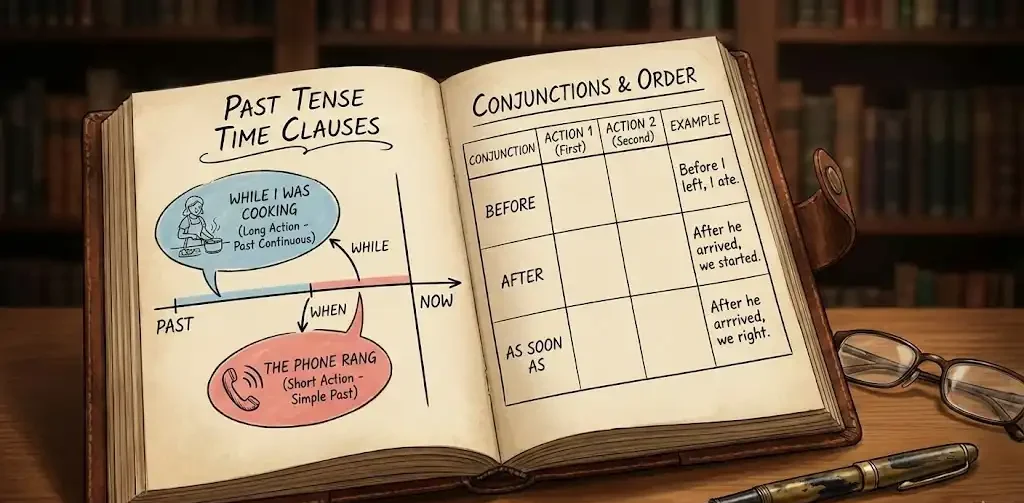 PAST TENSE
TIME CLAUSES
WHILE I WAS
COOKING
(Long Action -
Past Continuous)
WHILE
PAST
WHEN
NOW
THE PHONE RANG
(Short Action -
Simple Past)
CONJUNCTIONS & ORDER
CONJUNCTION
ACTION 1
(First)
ACTION 2
(Second)
EXAMPLE
BEFORE
Before I
left, I ate.
AFTER
After he
arrived,
we started.
AS SOON
AS
After he
arrrived,
we right.